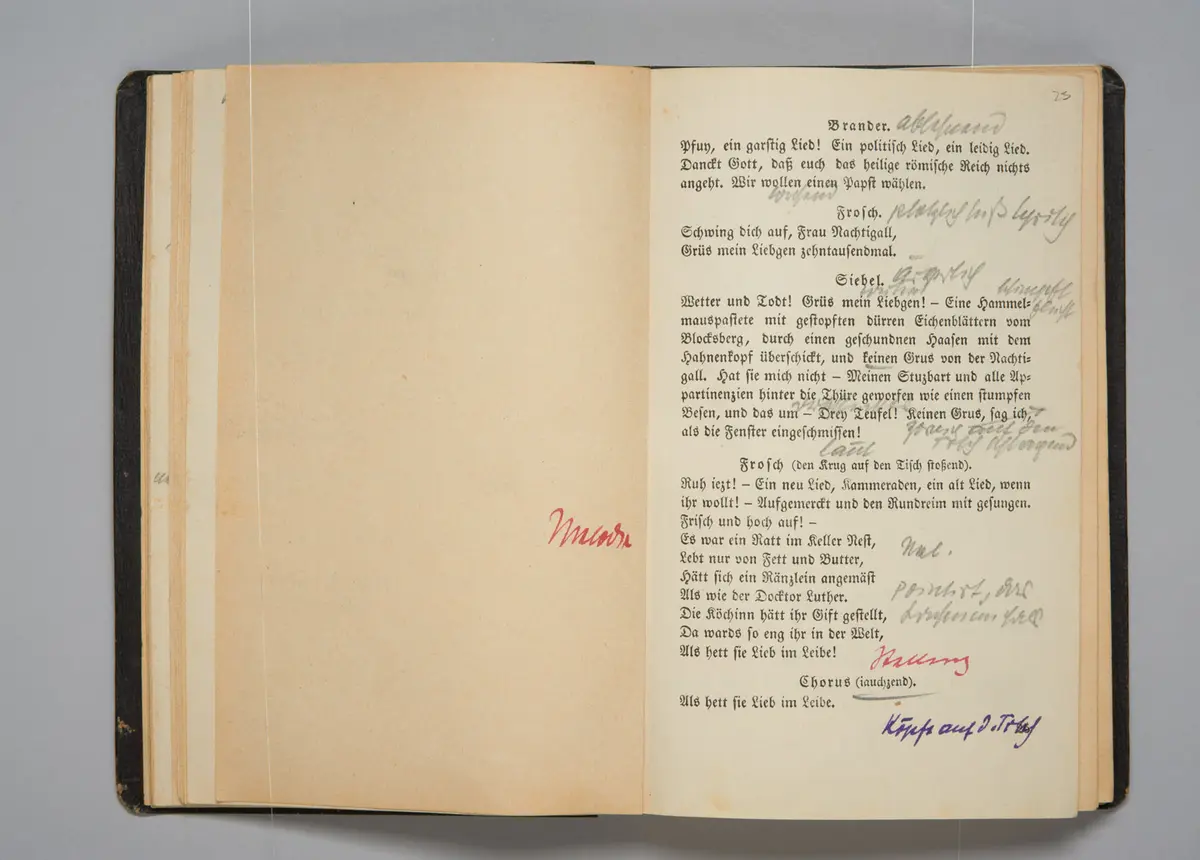 Melodie
25
Brander. ablehnend
Pfuy, ein garstig Lied! Ein politisch Lied, ein leidig Lied.
Danckt Gott, daß euch das heilige römische Reich nichts
angeht. Wir wollen einen Papst wählen.
Frosch. plötzlich süß lyrisch
Schwing dich auf, Frau Nachtigall,
Grüs mein Liebgen zehntausendmal.
Siebel. ärgerlich
Wetter und Todt! Grüs mein Liebgen! – Eine Hammel⸗
mauspastete mit gestopften dürren Eichenblättern vom
Blocksberg, durch einen geschundnen Haasen mit dem
Hahnenkopf überschickt, und keinen Grus von der Nachti⸗
gall. Hat sie mich nicht – Meinen Stuzbart und alle Ap⸗
partinenzien hinter die Thüre geworfen wie einen stumpfen
Besen, und das um – Drey Teufel! Keinen Grus, sag ich,
als die Fenster eingeschmissen!
auf den
Tisch schlagend
laut
Frosch (den Krug auf den Tisch stoßend).
Ruh iezt! – Ein neu Lied, Kammeraden, ein alt Lied, wenn
ihr wollt! – Aufgemerckt und den Rundreim mit gesungen.
Frisch und hoch auf! –
Es war ein Ratt im Keller Nest,
Lebt nur von Fett und Butter,
Hätt sich ein Ränzlein angemäst
Als wie der Docktor Luther.
Die Köchinn hätt ihr Gift gestellt,
Da wards so eng ihr in der Welt,
Als hett sie Lieb im Leibe!
Mel.
Stellung
Chorus (iauchzend).
Als hett sie Lieb im Leibe.
Köpfe auf d. Tisch